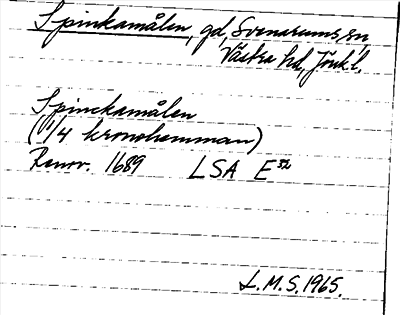 Spinkamålen, gd, Svenarums sn,
Västra hd, Jönk.l.
Spinckamålen
(1/4 kronohemman)
Renov. 1689 LSA E32
L.M.S. 1965.